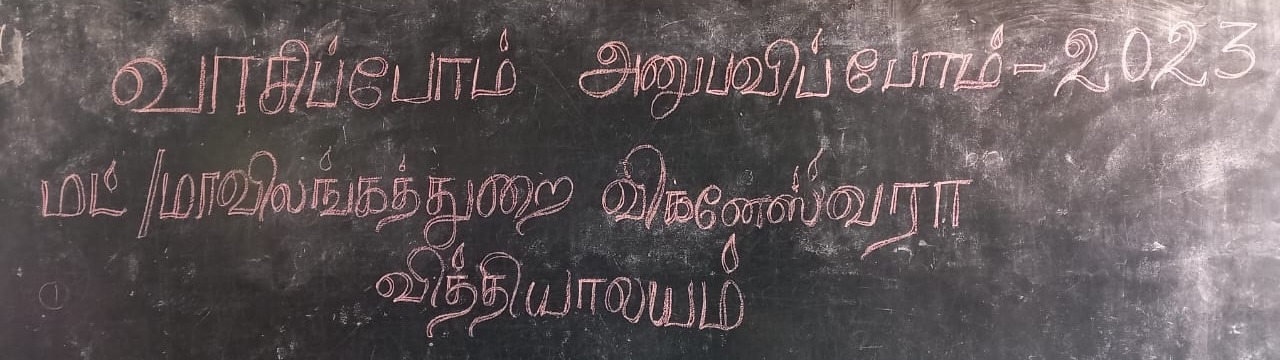 வாசிப்போம் அனுபவிப்போம் - 2023
மட் /மாவிலங்கத்துறை விக்னேஸ்வரா
வித்தியாலயம்